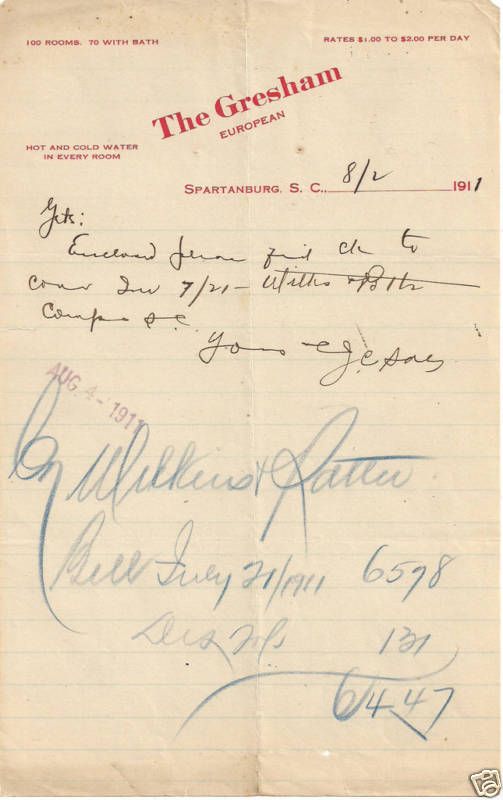 100 ROOMS. 70 WITH BATH
RATES $1.00 TO $2.00 PER DAY
The Gresham
EUROPEAN
HOT AND COLD WATER
IN EVERY ROOM
SPARTANBURG, S. C., 8/2 1911
Gts:
Enclosed please find ck to
cover Inv 7/21 -
S.C.
Yours
AUG 4 - 1911
Wilkins &
Bill July 21/1911 6598
Dis 2% 131
6447